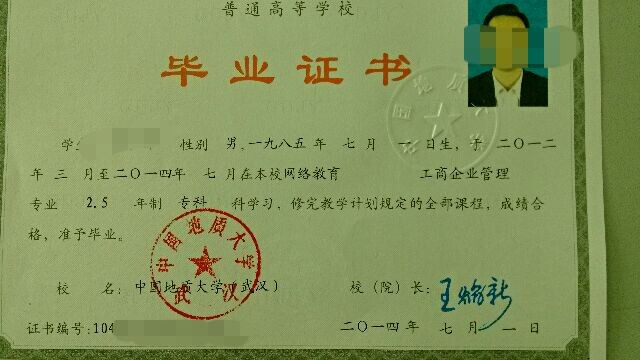 普通高等学校
毕业证书
学生 性别 男，一九八五年 七月 一日生，于 二〇一二
年 三 月至二〇一四年 七月在本校网络教育 工商企业管理
专业 2.5 年制 专科 科学习，修完教学计划规定的全部课程，成绩合
格，准予毕业。
中国地质大学
武汉
校 名：中国地质大学（武汉） 校（院）长：
证书编号：104 二〇一四年 七月 一日